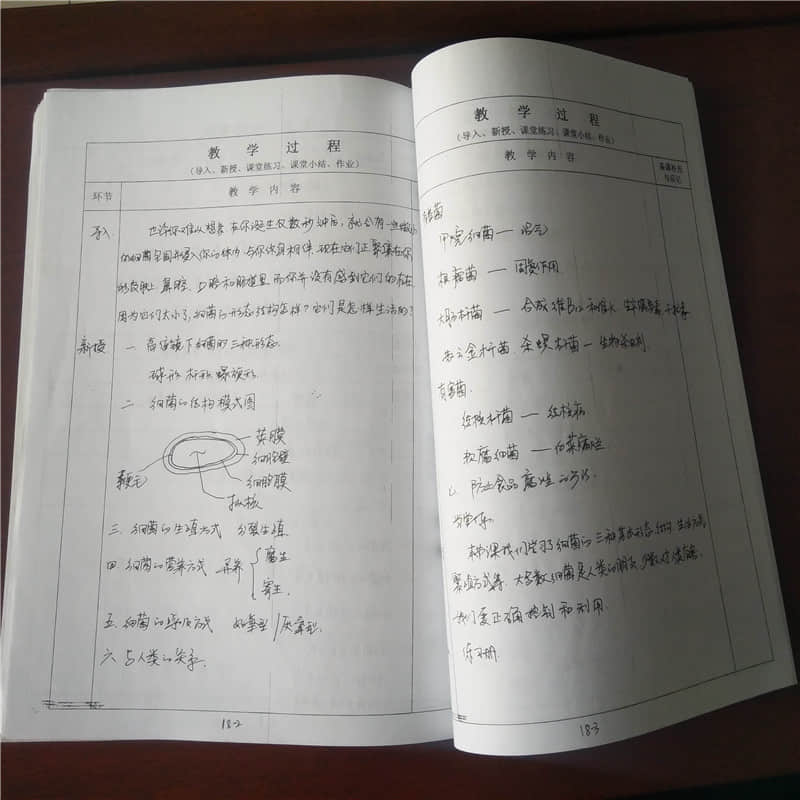 教 学 过 程
(导入、新授、课堂练习、课堂小结、作业)
环节
教 学 内 容
导入
也许你难以想象 在你诞生仅数秒钟后,就会有一些
的细菌 侵入你的体内 与你终身相伴.现在它们正聚集在你
的皮肤上 鼻腔、口腔和肠道里 而你并没有感到它们的存在
因为它们太小了,细菌的形态结构怎样?它们是怎样生活的?
新授
一 高倍镜下细菌的三种形态.
球形 杆形 螺旋形.
二 细菌的结构模式图
荚膜
细胞壁
细胞膜
鞭毛
拟核
三 细菌的生殖方式 分裂生殖
四 细菌的营养方式 异养 { 腐生 寄生
五 细菌的呼吸方式 好氧型/厌氧型.
六 与人类的关系.
18-2
教 学 过 程
(导入、新授、课堂练习、课堂小结、作业)
教 学 内 容
甲烷细菌 — 沼气
根瘤菌 — 固氮作用
大肠杆菌 — 合成维B12和维K
苏云金杆菌 杀螟杆菌 — 生物杀虫剂
有害菌
结核杆菌 — 结核病
软腐细菌 — 白菜腐烂
七 防止食品腐烂的方法
本课我们学习了细菌的三种常见形态 结构 生活方式
繁殖方式等. 大多数细菌是人类的朋友 少数对人类有害.
我们要正确控制和利用.
练习册
18-3